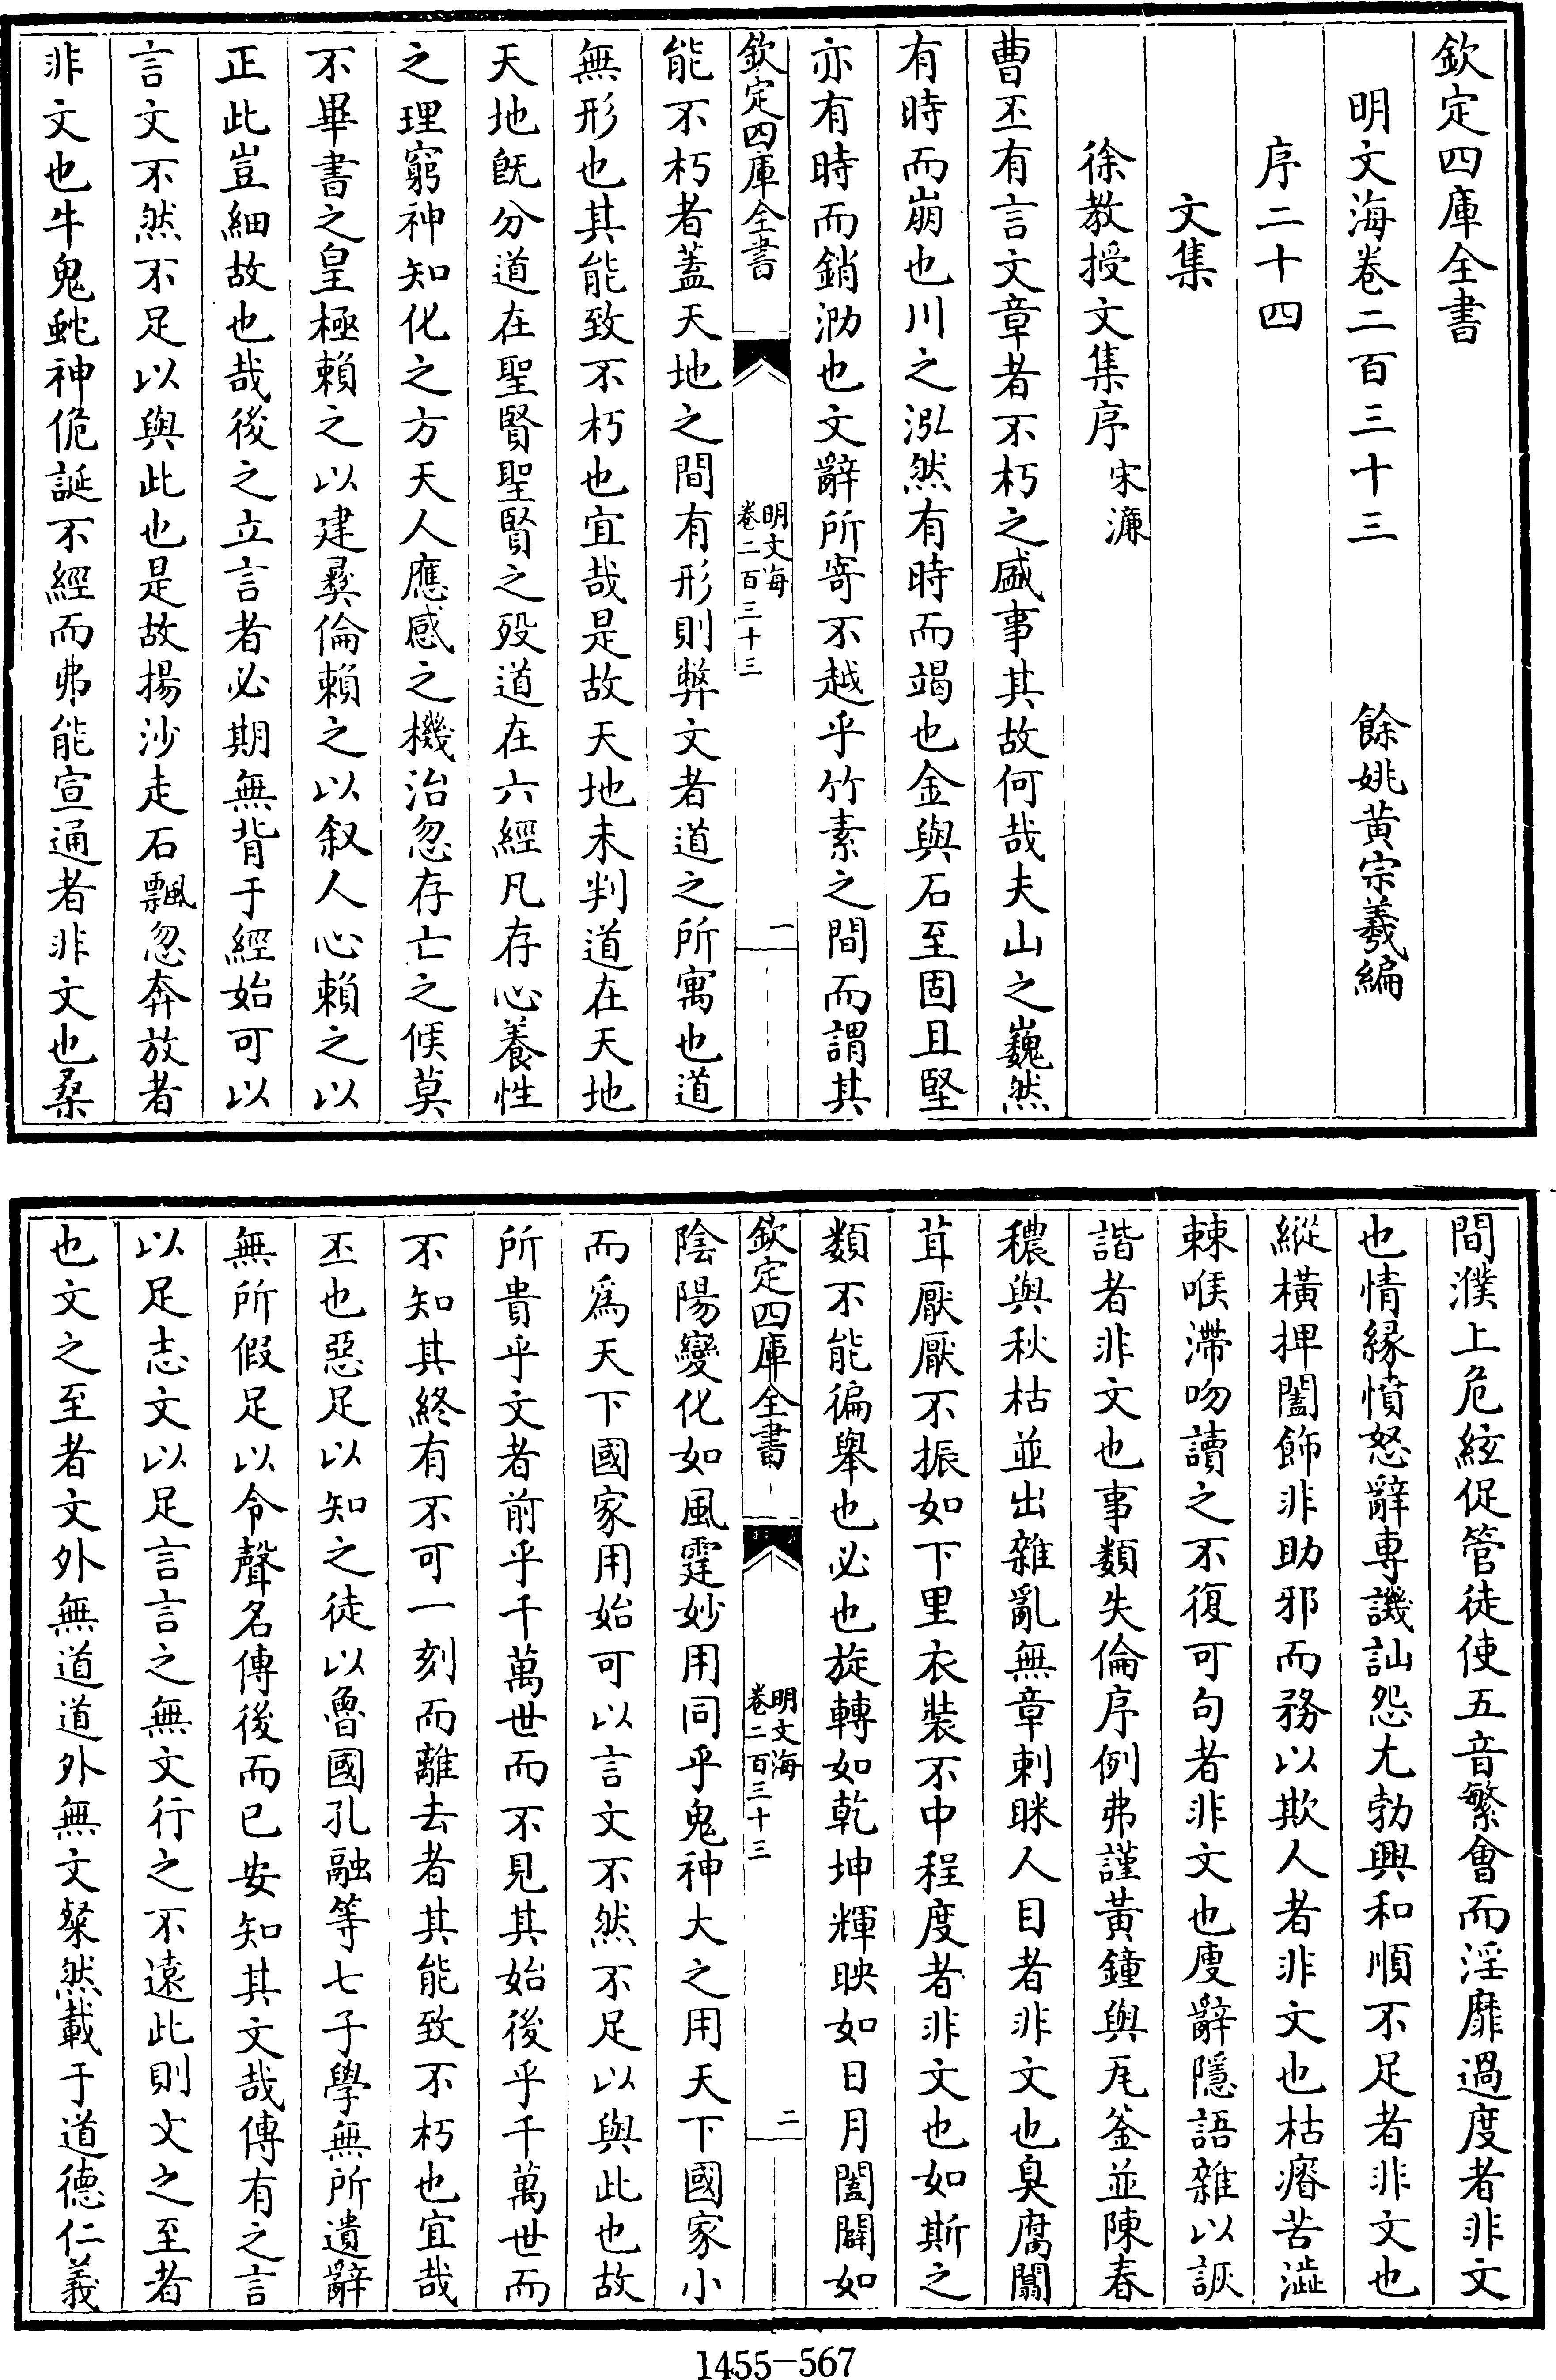 欽定四庫全書
明文海卷二百三十三　餘姚黃宗羲編
序二十四
文集
徐教授文集序 宋濂
曹丕有言文章者不朽之盛事其故何哉夫山之巍然
有時而崩也川之泓然有時而竭也金與石至固且堅
亦有時而銷泐也文辭所寄不越乎竹素之間而謂其
欽定四庫全書
明文海
卷二百三十三
一
能不朽者蓋天地之間有形則弊文者道之所寓也道
無形也其能致不朽也宜哉是故天地未判道在天地
天地旣分道在聖賢聖賢之歿道在六經凡存心養性
之理窮神知化之方天人應感之機治忽存亡之候莫
不畢書之皇極賴之以建彝倫賴之以叙人心賴之以
正此豈細故也哉後之立言者必期無背于經始可以
言文不然不足以與此也是故揚沙走石飄忽奔放者
非文也牛鬼蛇神佹誕不經而弗能宣通者非文也桑
間濮上危絃促管徒使五音繁會而淫靡過度者非文
也情緣憤怒辭專譏訕怨尤勃興和順不足者非文也
縱橫捭闔飾非助邪而務以欺人者非文也枯瘠苦澁
棘喉滯吻讀之不復可句者非文也廋辭隱語雜以詼
諧者非文也事類失倫序例弗謹黃鐘與瓦釜並陳春
穠與秋枯並出雜亂無章刺眯人目者非文也臭腐闒
茸厭厭不振如下里衣裝不中程度者非文也如斯之
類不能徧舉也必也旋轉如乾坤輝映如日月闔闢如
欽定四庫全書
明文海
卷二百三十三
二
陰陽變化如風霆妙用同乎鬼神大之用天下國家小
而爲天下國家用始可以言文不然不足以與此也故
所貴乎文者前乎千萬世而不見其始後乎千萬世而
不知其終有不可一刻而離去者其能致不朽也宜哉
丕也惡足以知之徒以魯國孔融等七子學無所遺辭
無所假足以令聲名傳後而已安知其文哉傳有之言
以足志文以足言言之無文行之不遠此則文之至者
也文之至者文外無道道外無文粲然載于道德仁義
1455-567